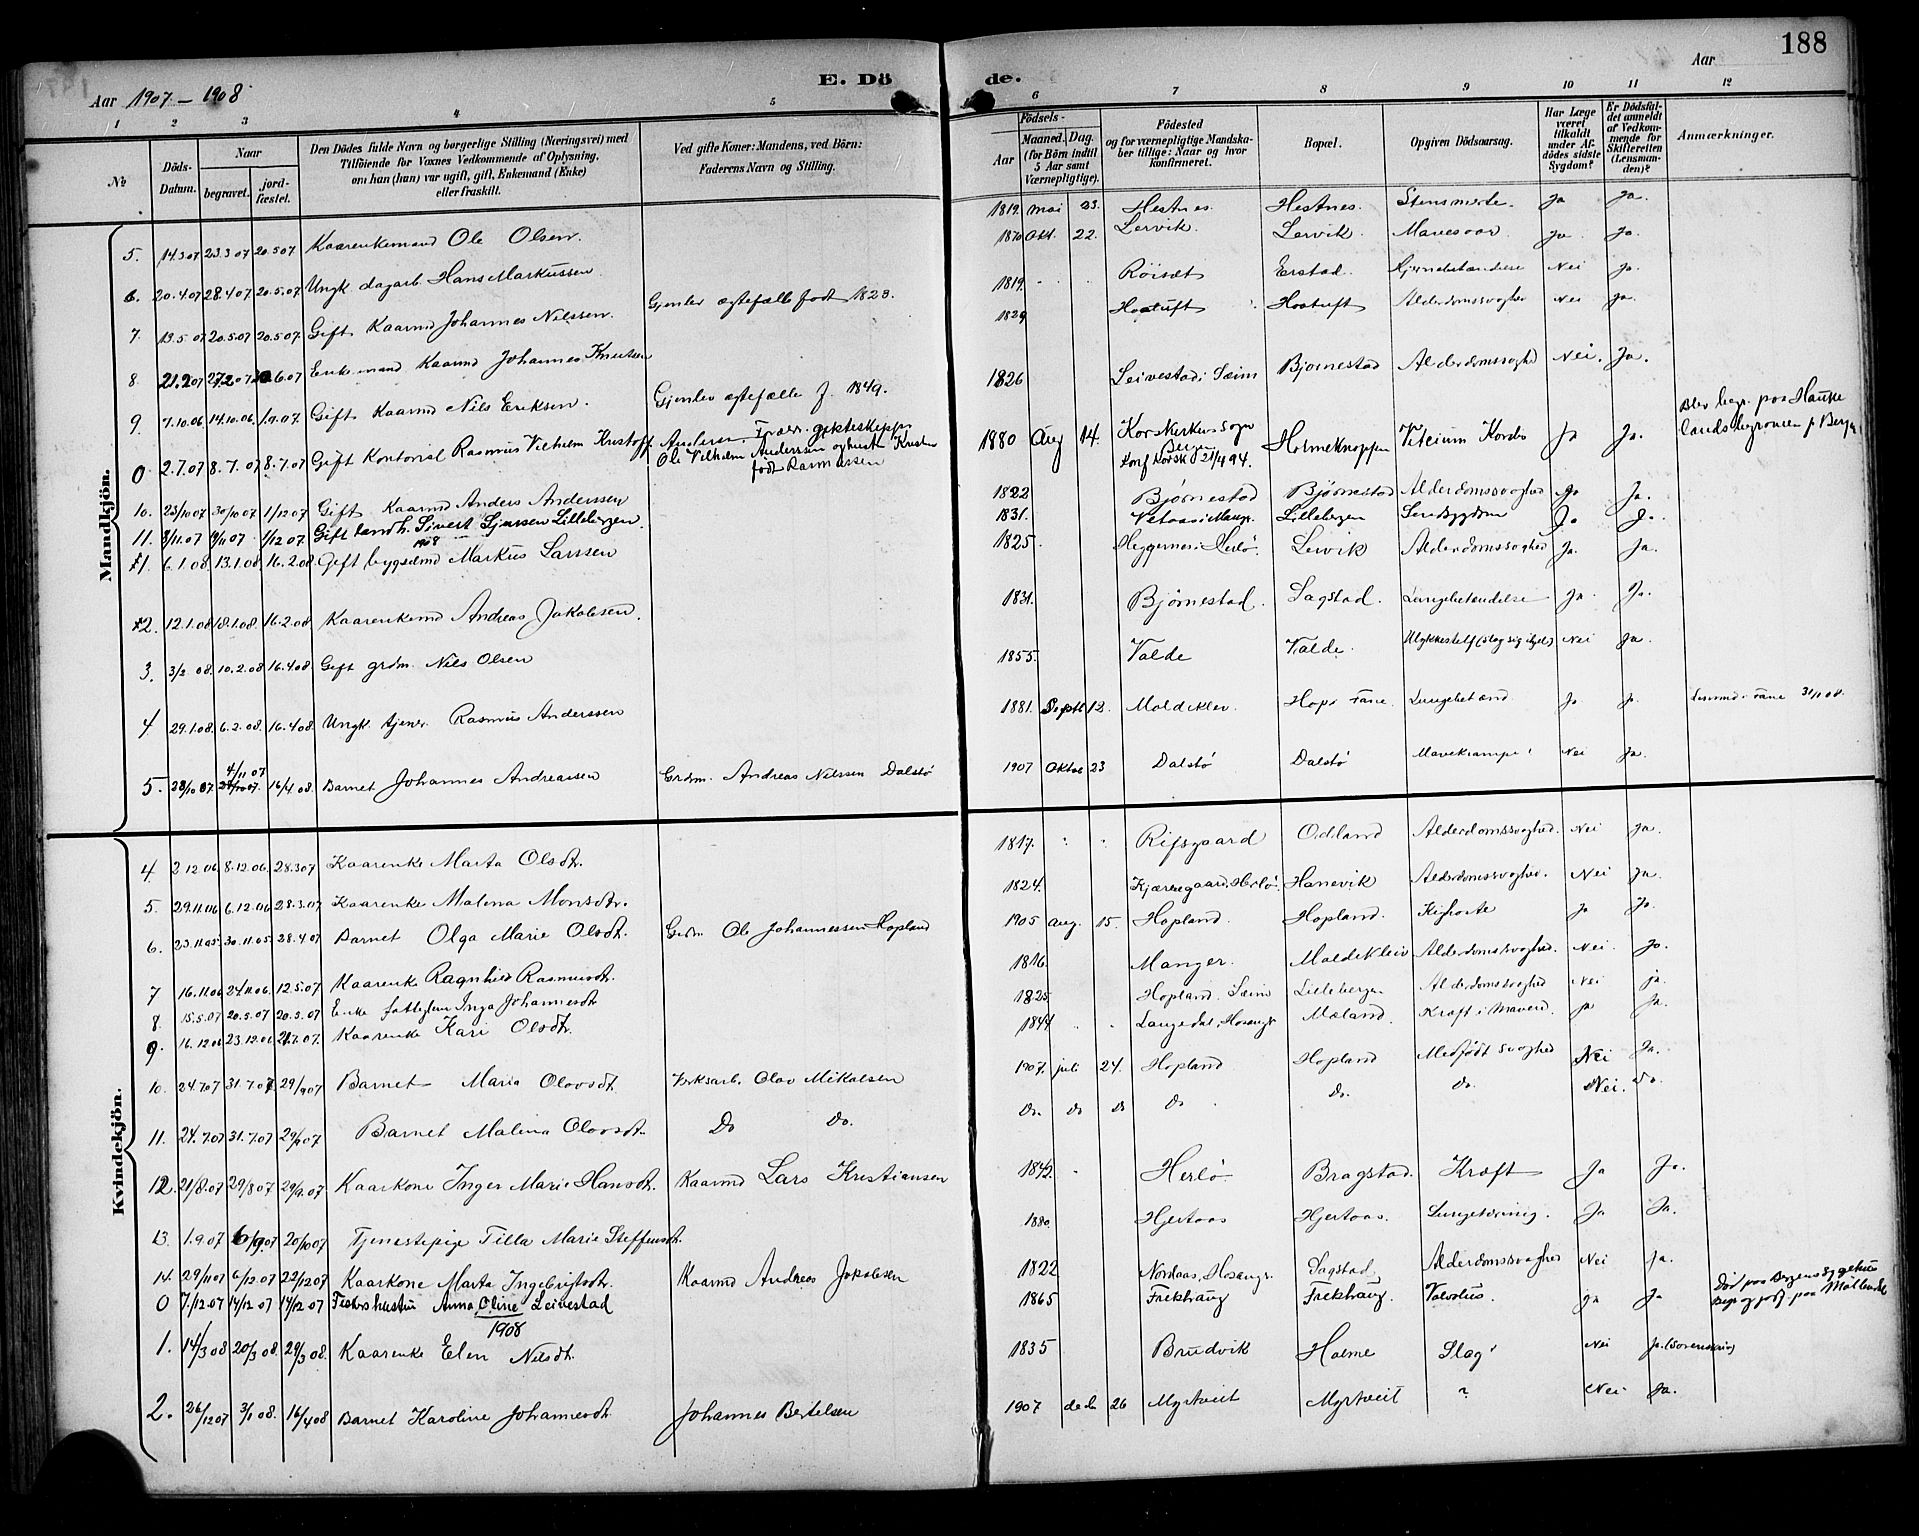 188
Aar 1907 – 1908
E. Dö de.
Aar
1 2 3 4 5 6 7 8 9 10 11 12
№
Döds-Datum.
Naar begravet. jord-fæstet.
Den Dödes fulde Navn og borgerlige Stilling (Næringsvei) med Tilföiende for Voxnes Vedkommende af Oplysning, om han (hun) var ugift, gift, Enkemand (Enke) eller fraskilt.
Ved gifte Koner: Mandens, ved Börn: Faderens Navn og Stilling.
Födsels- Aar Maaned. Dag. (for Börn indtil 5 Aar samt Værnepligtige).
Födested og for værnepligtige Mandskaber tillige: Naar og hvor konfirmeret.
Bopæl.
Opgiven Dödsaarsag.
Har Læge været tilkaldt under Afdødes sidste Sygdom?
Er Dödsfaldet anmeldt af Vedkommende for Skifteretten (Lensmanden)?
Anmærkninger.
Mandkjön.
5. 14.3 07 23.3 07 20.5 07 Kaarenkemand Ole Olsen. 1819. mai 23. Hestnes. Hestnes. Stensmerte. Ja Ja.
6. 20.4.07 28.4.07 20.5.07 Ungk. dagarb. Hans Markussen 1870 Okt. 22. Lervik. Lervik. Mavesaar Ja. Ja.
7. 13.5 07 20.5.07 20.5.07. Gift Kaarmd Johannes Nilssen. Gjenlev ægtefælle født 1823. 1819. Röisæt Erstad. Nei Ja.
8. 21.2 07 27.2 07 6.07 Enkemand Kaarmd Johannes Knutsen 1829 Hoatuft Hoatuft Alderdomssvaghed Nei Ja.
9. 7.10.06 14.10.06. 1.9.07. Gift Kaarmd Nils Eriksen. Gjenlev ægtefælle f. 1849. 1826 Leivestad i Sæim Bjørnestad Alderdomssvaghed Nei. Ja.
0 2.7.07 8.7.07 8.7.07 Gift Kontorist Rasmus Vilhelm Kristoff. Andersen. Foræl. gjæsteskipper Ole Vilhelm Anderssen og hustr Kristen født Rasmussen 1880 Aug 14. Korskirkens sogn Bergen Konf Korsk 21/4 94. Holmeknappen Vitium Kordis Ja Ja. Blev begr. paa Hauke landskegraven i Bergen
10. 23/10 07 30/10 07 1/12 07 Gift Kaarmd Anders Anderssen 1822 Bjørnestad Bjørnestad Alderdomssvaghed Ja Ja.
11. 3/11.07 9/11 07 1/12 07. Gift landh. Sivert Sjurssen Lillebergen. 1831. Vetaas i Mang. Lillebergen Ja Ja.
1908
1. 6.1.08. 13.1.08. 16.2.08 Gift bygselmd Markus Larssen 1825 Heggernes i Herlø. Leivik Alderdomssvaghed Ja. Ja.
2. 12.1.08 18.1.08. 16.2.08 Kaarenkemd Andreas Jakobsen. 1831. Bjørnestad. Sagstad. Lungebetændelse Ja. Ja.
3. 3/2 08. 10.2.08 16.4.08 Gift grdm. Nils Olsen 1855. Valde Valde Ulykkestilf (slog sig ihjel) Nei Ja.
4 29.1.08. 6.2.08. 16.4.08 Ungk. tjener. Rasmus Anderssen 1881. Septb 12. Moldeklev. Hop i Fane. Lungebetænd. Ja Ja. Lensmd i Fane 31/1 08.
5. 28/10 07. 4/11 07 16/4 08. Barnet Johannes Andreassen Grdm. Andreas Nilssen Dalstø 1907 Oktob 23 Dalstø Dalstø Mavekrampe Nei Ja.
Kvindekjön.
4. 2.12.06 8.12.06. 28.3 07 Kaarenke Marta Olsdtr. 1817. Rifsgaard Odland Alderdomssvaghed. Nei Ja.
5. 29.11.06 6.12.06 28.3.07 Kaarenke Malena Monsdtr. 1824. Kjærregaard, Herlø. Hanevik Alderdomssvaghed. Nei Ja.
6. 23.11.05. 30.11.05. 28.4.07 Barnet Olga Marie Olsdtr. Grdm Ole Johannessen Hopland 1905 Aug. 15. Hopland. Hopland. Kighoste Ja Ja.
7 16.11.06 24.11.06. 12.5.07 Kaarenke Ragnhild Rasmusdtr. 1816. Manger. Moldekleiv Alderdomssvaghed. Nei. Ja.
8. 15.5.07 20.5.07 20.5.07 Enke fattiglem Inga Johannesdtr 1825 Hopland. Sæim Lillebergen Alderdomssvaghed Nei Ja.
9. 16.12 06 23.12.06 21.7.07. Kaarenke Kari Olsdtr. 1844 Langedal, Hosangr Mæland. Kræft i Maven. Ja Ja.
10. 24.7.07 31.7.07 29/9 07 Barnet Maria Olovsdtr. Verksarb. Olav Mikalsen 1907. juli 24. Hopland Hopland Medfødt svaghed Nei Ja.
11. 24.7.07 31.7.07 29/9 07 Barnet Malina Olovsdtr. Do Do. Do. do do do do. do. Nei. do.
12. 21/8.07 29/8 07 29/9.07 Kaarkone Inger Marie Hansdtr. Kaarmd Lars Kristiansen 1842. Herlø Bragstad. Kræft Ja Ja.
13. 1.9.07 6/9 07 20/10 07 Tjenestepige Tilla Marie Steffensdtr. 1880. Hjertaas Hjertaas. Lungetæring. Ja Ja.
14. 29/11 07 6/12.07 22/12 07 Kaarkone Marta Ingebrigtsdtr. Kaarmd Andreas Jakobsen 1822 Nordaas, Hosangr. Sagstad Alderdomssvaghed Nei Ja.
0 7/12.07 14/12 07 14/12 07 Fiskrhustru Anna Oline Leivestad 1865 Frekhaug Frekhaug. Ja Ja Död paa Bergens Sygehus Begr og jordf. paa Möllendal
1908
1. 14/3 08 20/3 08. 29/3 08. Kaarenke Elen Nilsdtr. 1835 Brudvik Holme Slag Nei Ja.
2. 26/12 07 3/1 08. 16/4 08 Barnet Karoline Johannesdtr Johannes Bertelsen 1907 decb 26 Myrtveit Myrtveit ? Nei Ja.